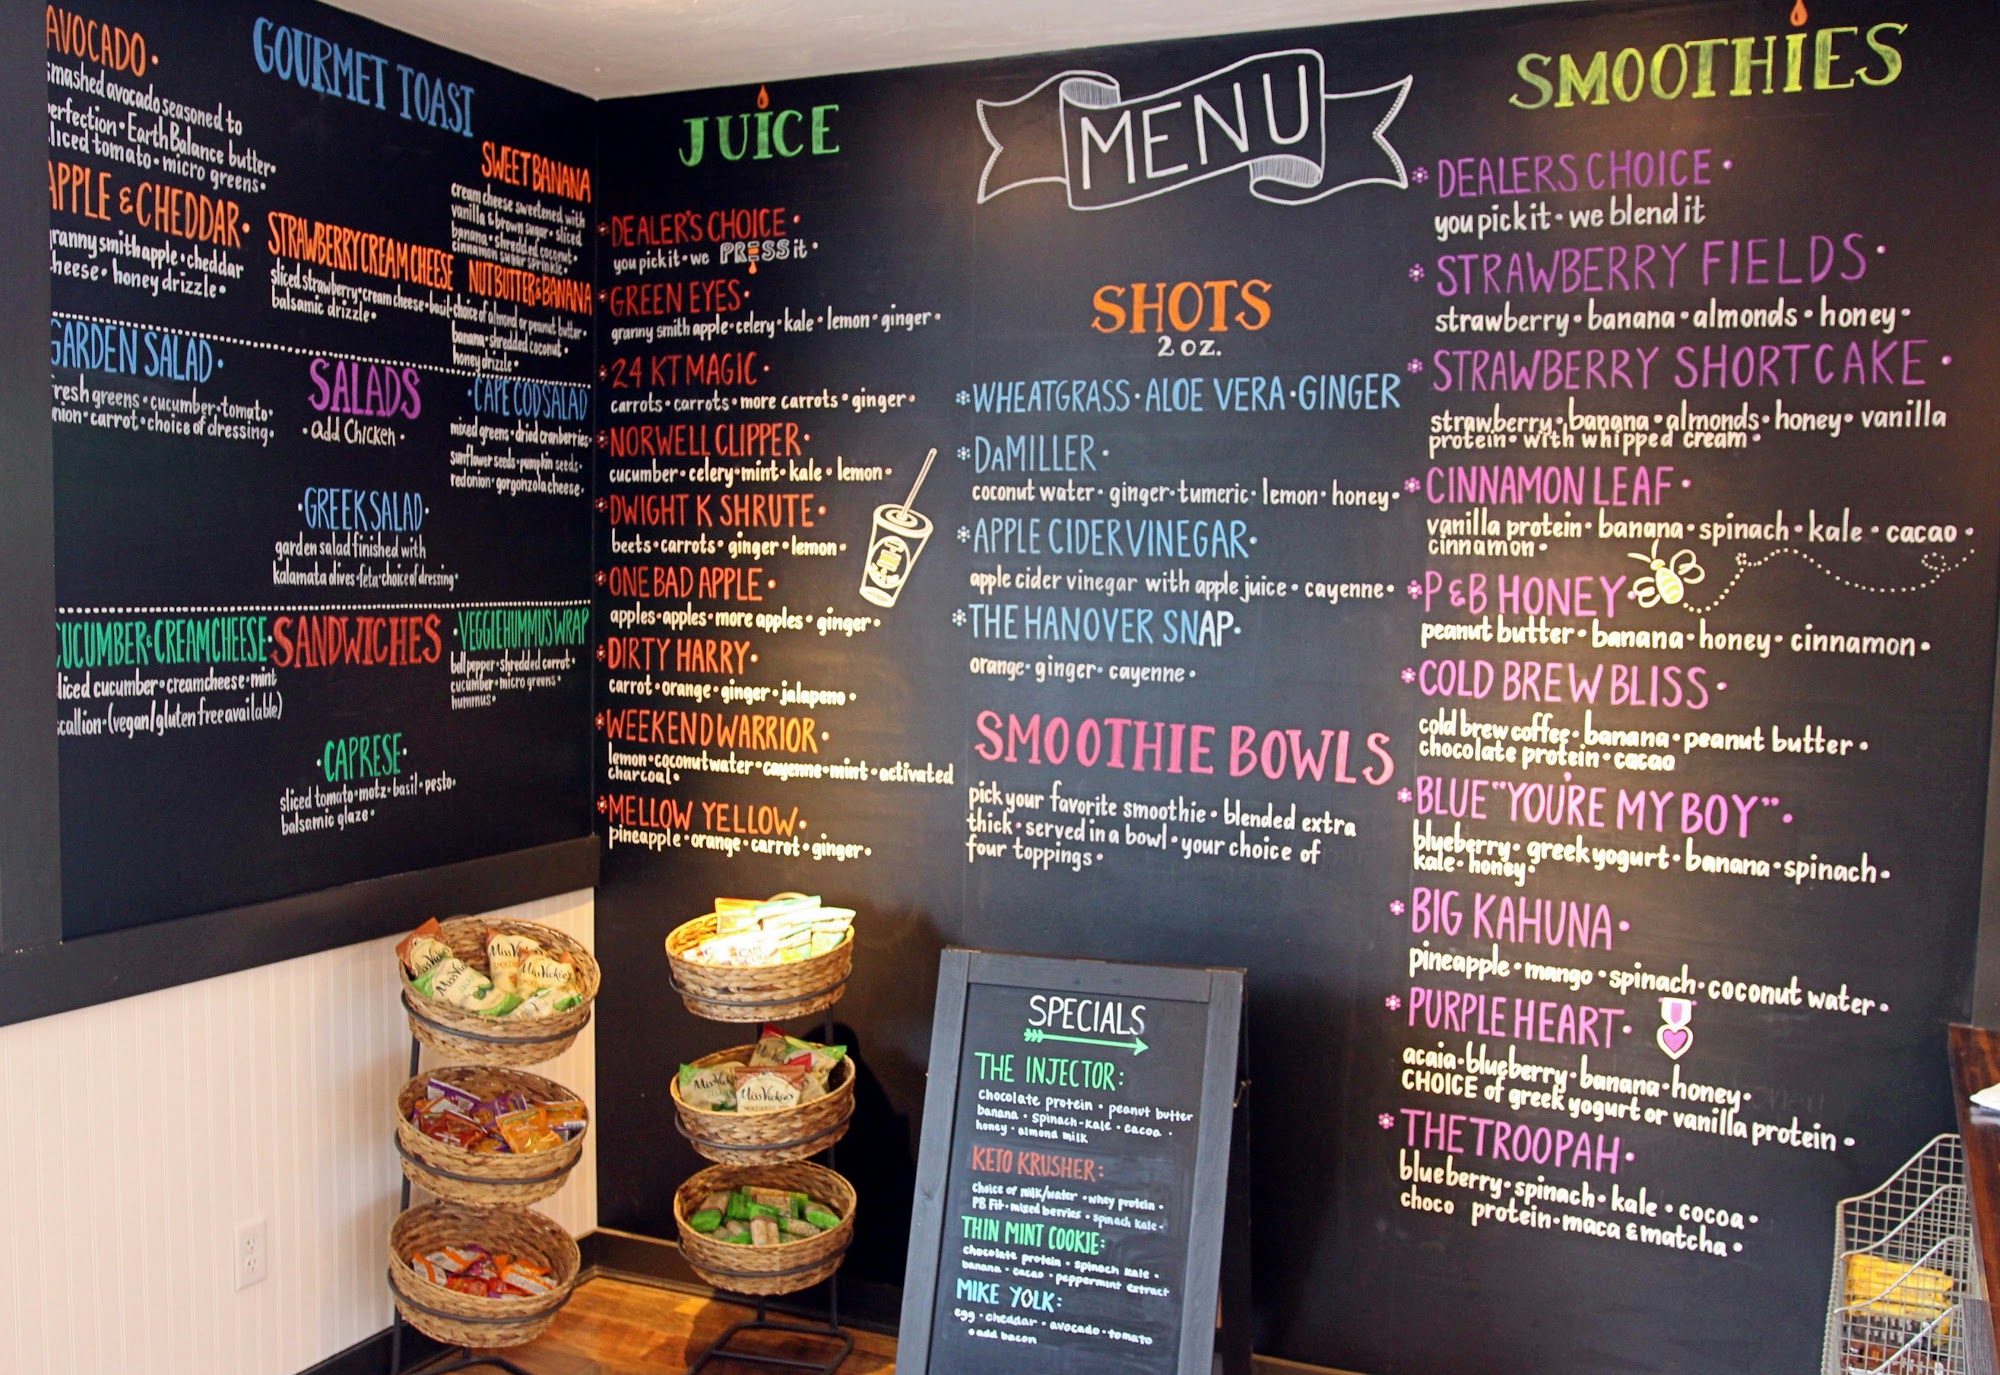 GOURMET TOAST
AVOCADO•
smashed avocado seasoned to
perfection • Earth Balance butter•
sliced tomato • micro greens•
APPLE & CHEDDAR•
granny smith apple • cheddar
cheese • honey drizzle•
STRAWBERRY CREAM CHEESE
sliced strawberry • cream cheese • basil•
balsamic drizzle•
SWEET BANANA
cream cheese sweetened with
vanilla & brown sugar • sliced
banana • shredded coconut•
cinnamon sugar sprinkle•
NUTBUTTER & BANANA
choice of almond or peanut butter•
banana • shredded coconut•
honey drizzle•
GARDEN SALAD•
fresh greens • cucumber • tomato•
onion • carrot • choice of dressing•
SALADS
• add Chicken •
• CAPE COD SALAD
mixed greens • dried cranberries•
sunflower seeds • pumpkin seeds•
red onion • gorgonzola cheese•
• GREEK SALAD•
garden salad finished with
kalamata olives • feta • choice of dressing•
CUCUMBER & CREAM CHEESE•
sliced cucumber • cream cheese • mint
scallion • (vegan/gluten free available)
SANDWICHES
• VEGGIE HUMMUS WRAP
bell pepper • shredded carrot•
cucumber • micro greens•
hummus•
• CAPRESE•
sliced tomato • motz • basil • pesto•
balsamic glaze•
JUICE
DEALER'S CHOICE •
you pick it • we PRESS it •
GREEN EYES•
granny smith apple • celery • kale • lemon • ginger •
24 KT MAGIC •
carrots • carrots • more carrots • ginger •
NORWELL CLIPPER•
cucumber • celery • mint • kale • lemon •
DWIGHT K SHRUTE•
beets • carrots • ginger • lemon •
ONE BAD APPLE •
apples • apples • more apples • ginger •
DIRTY HARRY•
carrot • orange • ginger • jalapeno •
WEEKEND WARRIOR •
lemon • coconut water • cayenne • mint • activated
charcoal •
MELLOW YELLOW•
pineapple • orange • carrot • ginger•
MENU
SHOTS
2 oz.
WHEATGRASS • ALOE VERA • GINGER
DaMILLER •
coconut water • ginger • tumeric • lemon • honey •
APPLE CIDER VINEGAR•
apple cider vinegar with apple juice • cayenne •
THE HANOVER SNAP•
orange • ginger • cayenne •
SMOOTHIE BOWLS
pick your favorite smoothie • blended extra
thick • served in a bowl • your choice of
four toppings •
SMOOTHIES
DEALERS CHOICE •
you pick it • we blend it
STRAWBERRY FIELDS •
strawberry • banana • almonds • honey •
STRAWBERRY SHORTCAKE •
strawberry • banana • almonds • honey • vanilla
protein • with whipped cream •
CINNAMON LEAF •
vanilla protein • banana • spinach • kale • cacao •
cinnamon •
P & B HONEY•
peanut butter • banana • honey • cinnamon •
COLD BREW BLISS •
cold brew coffee • banana • peanut butter •
chocolate protein • cacao
BLUE "YOU'RE MY BOY" •
blueberry • greek yogurt • banana • spinach •
kale • honey•
BIG KAHUNA •
pineapple • mango • spinach • coconut water •
PURPLE HEART•
acaia • blueberry • banana • honey•
CHOICE of greek yogurt or vanilla protein •
THE TROOPAH•
blueberry • spinach • kale • cocoa•
choco protein • maca & matcha •
SPECIALS
THE INJECTOR:
chocolate protein • peanut butter
banana • spinach-kale • cacoa •
honey • almond milk
KETO KRUSHER:
choice of milk/water • whey protein •
PB Fit • mixed berries • spinach kale•
THIN MINT COOKIE:
chocolate protein • spinach kale •
banana • cacao • peppermint extract
MIKE YOLK:
egg • cheddar • avocado • tomato
• add bacon
Miss Vickie's
Miss Vickie's
Miss Vickie's
Miss Vickie's
Miss Vickie's